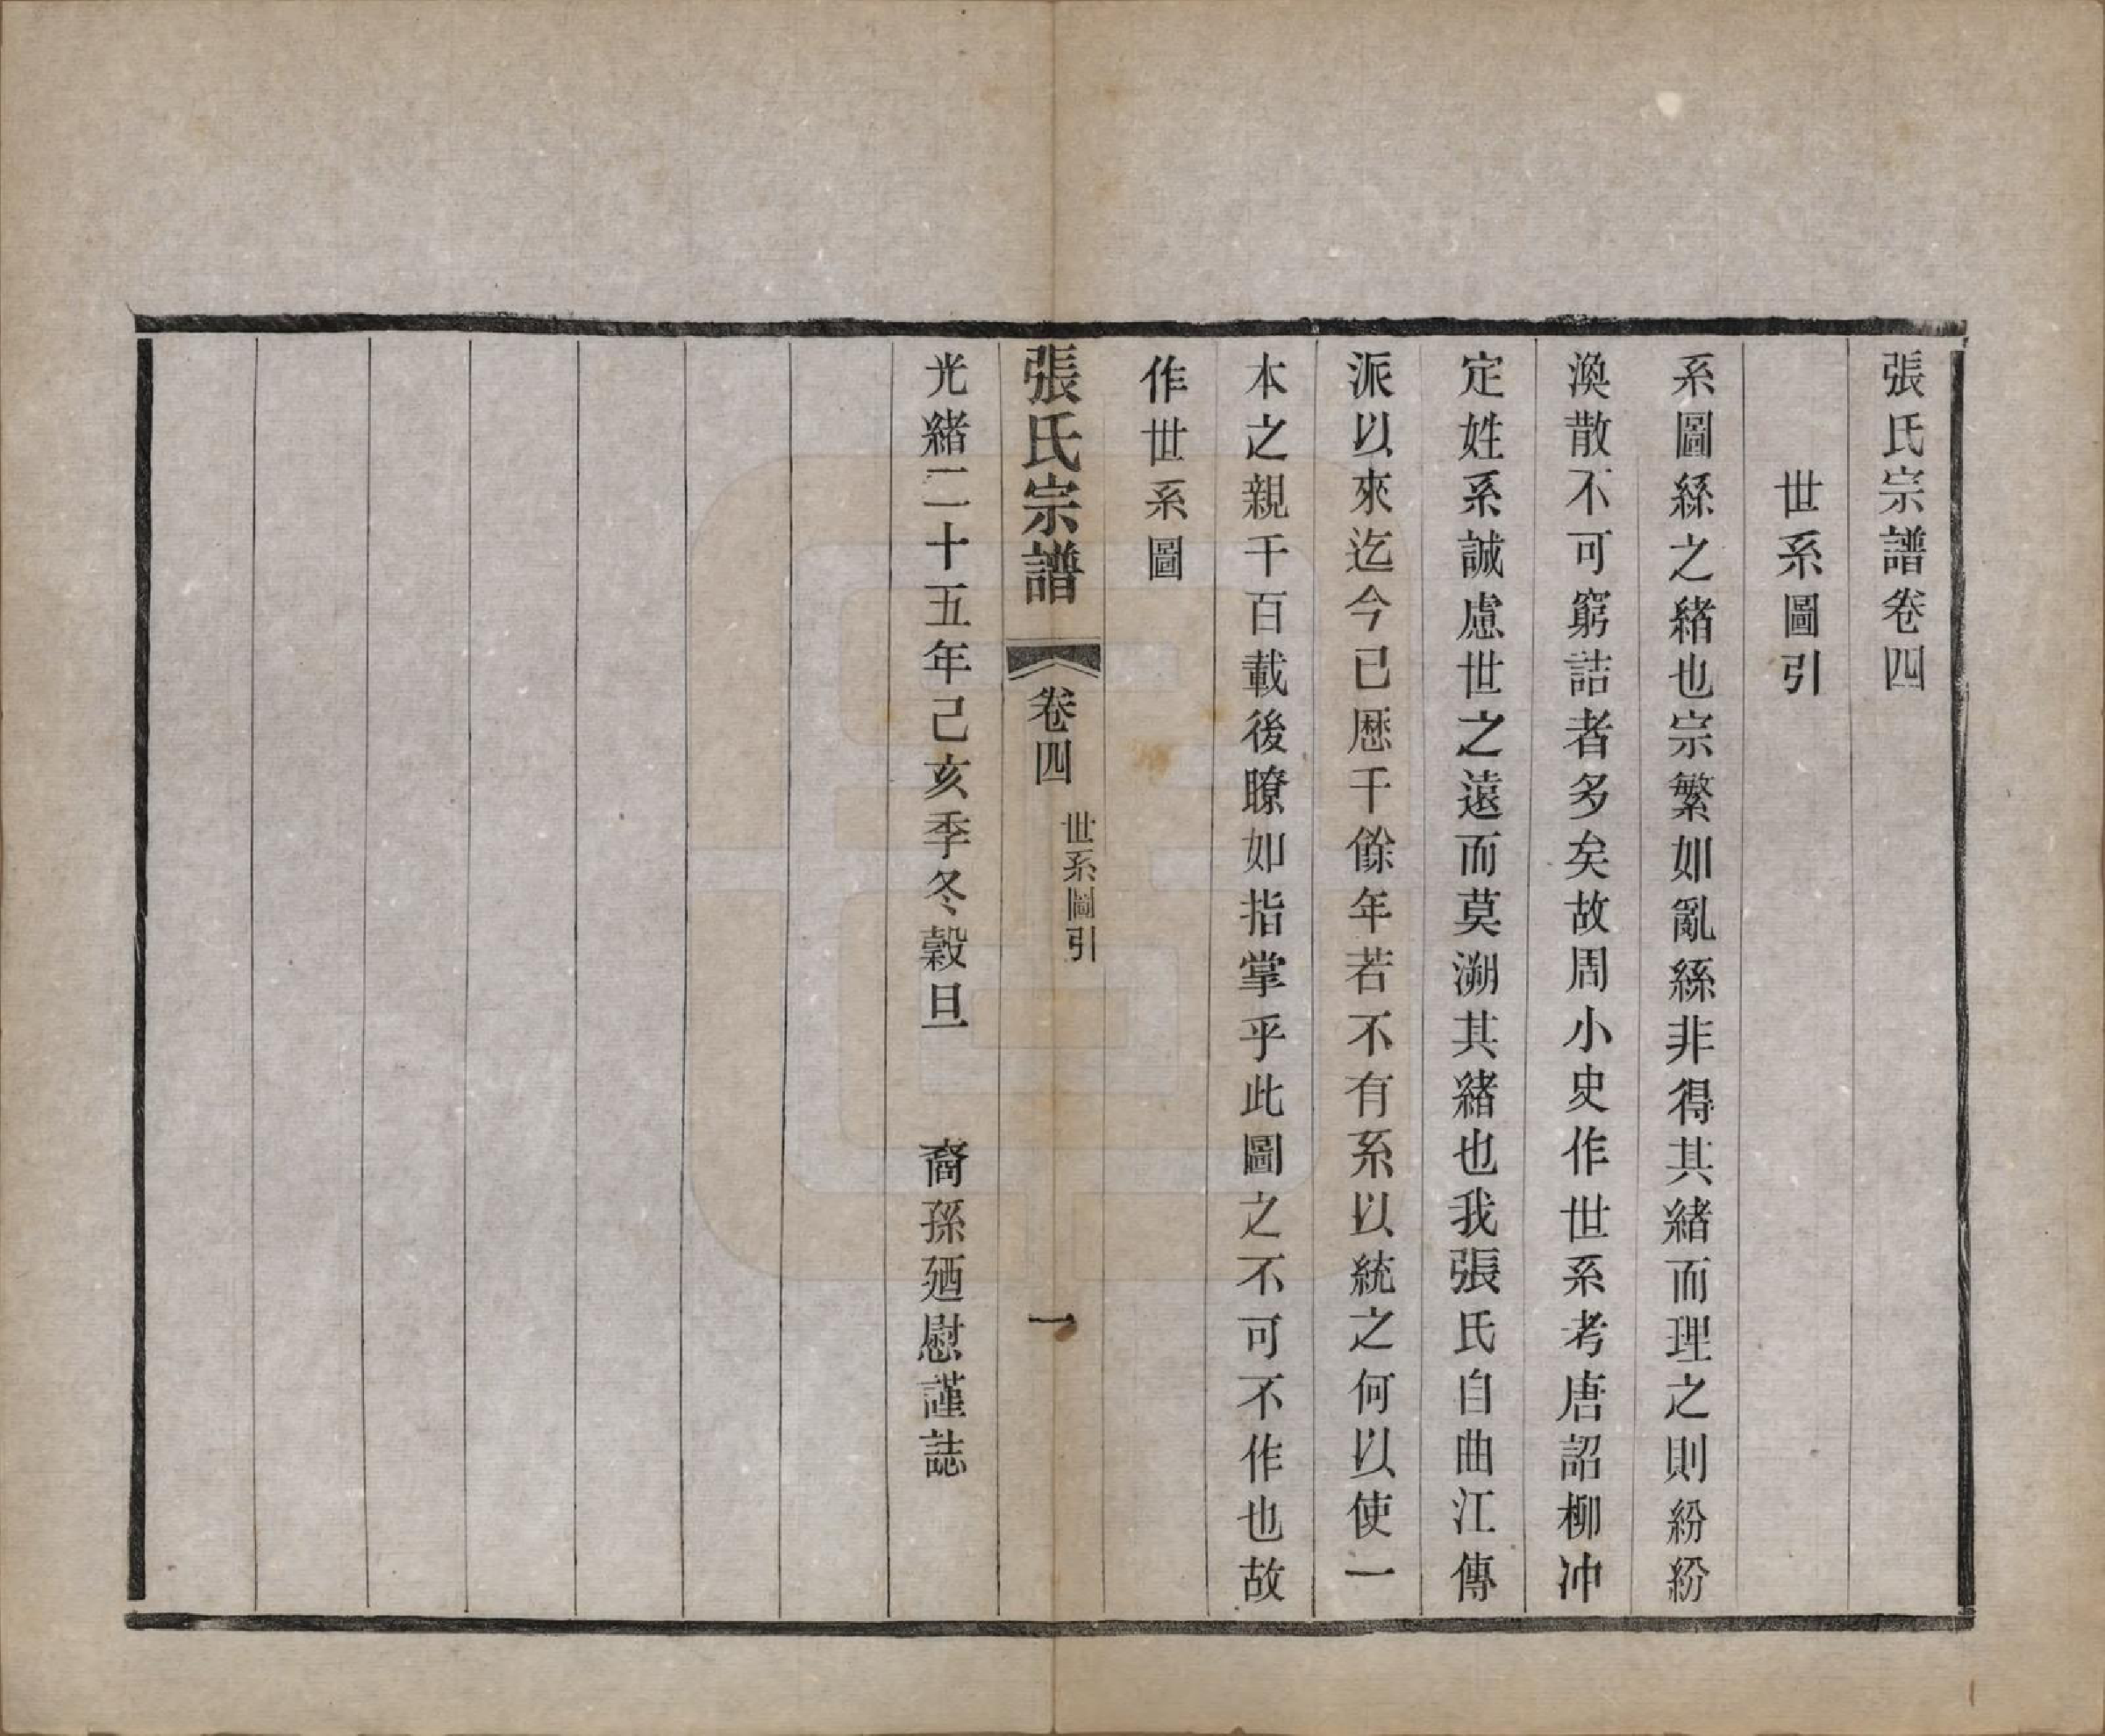 張氏宗譜卷四
世系圖引
系圖絲之緒也宗繁如亂絲非得其緒而理之則紛紛
渙散不可窮詰者多矣故周小史作世系考唐詔柳冲
定姓系誠慮世之遠而莫溯其緒也我張氏自曲江傳
派以來迄今已歷千餘年若不有系以統之何以使一
本之親千百載後瞭如指掌乎此圖之不可不作也故
作世系圖
張氏宗譜 卷四 世系圖引 一
光緒二十五年己亥季冬穀旦 裔孫廼慰謹誌